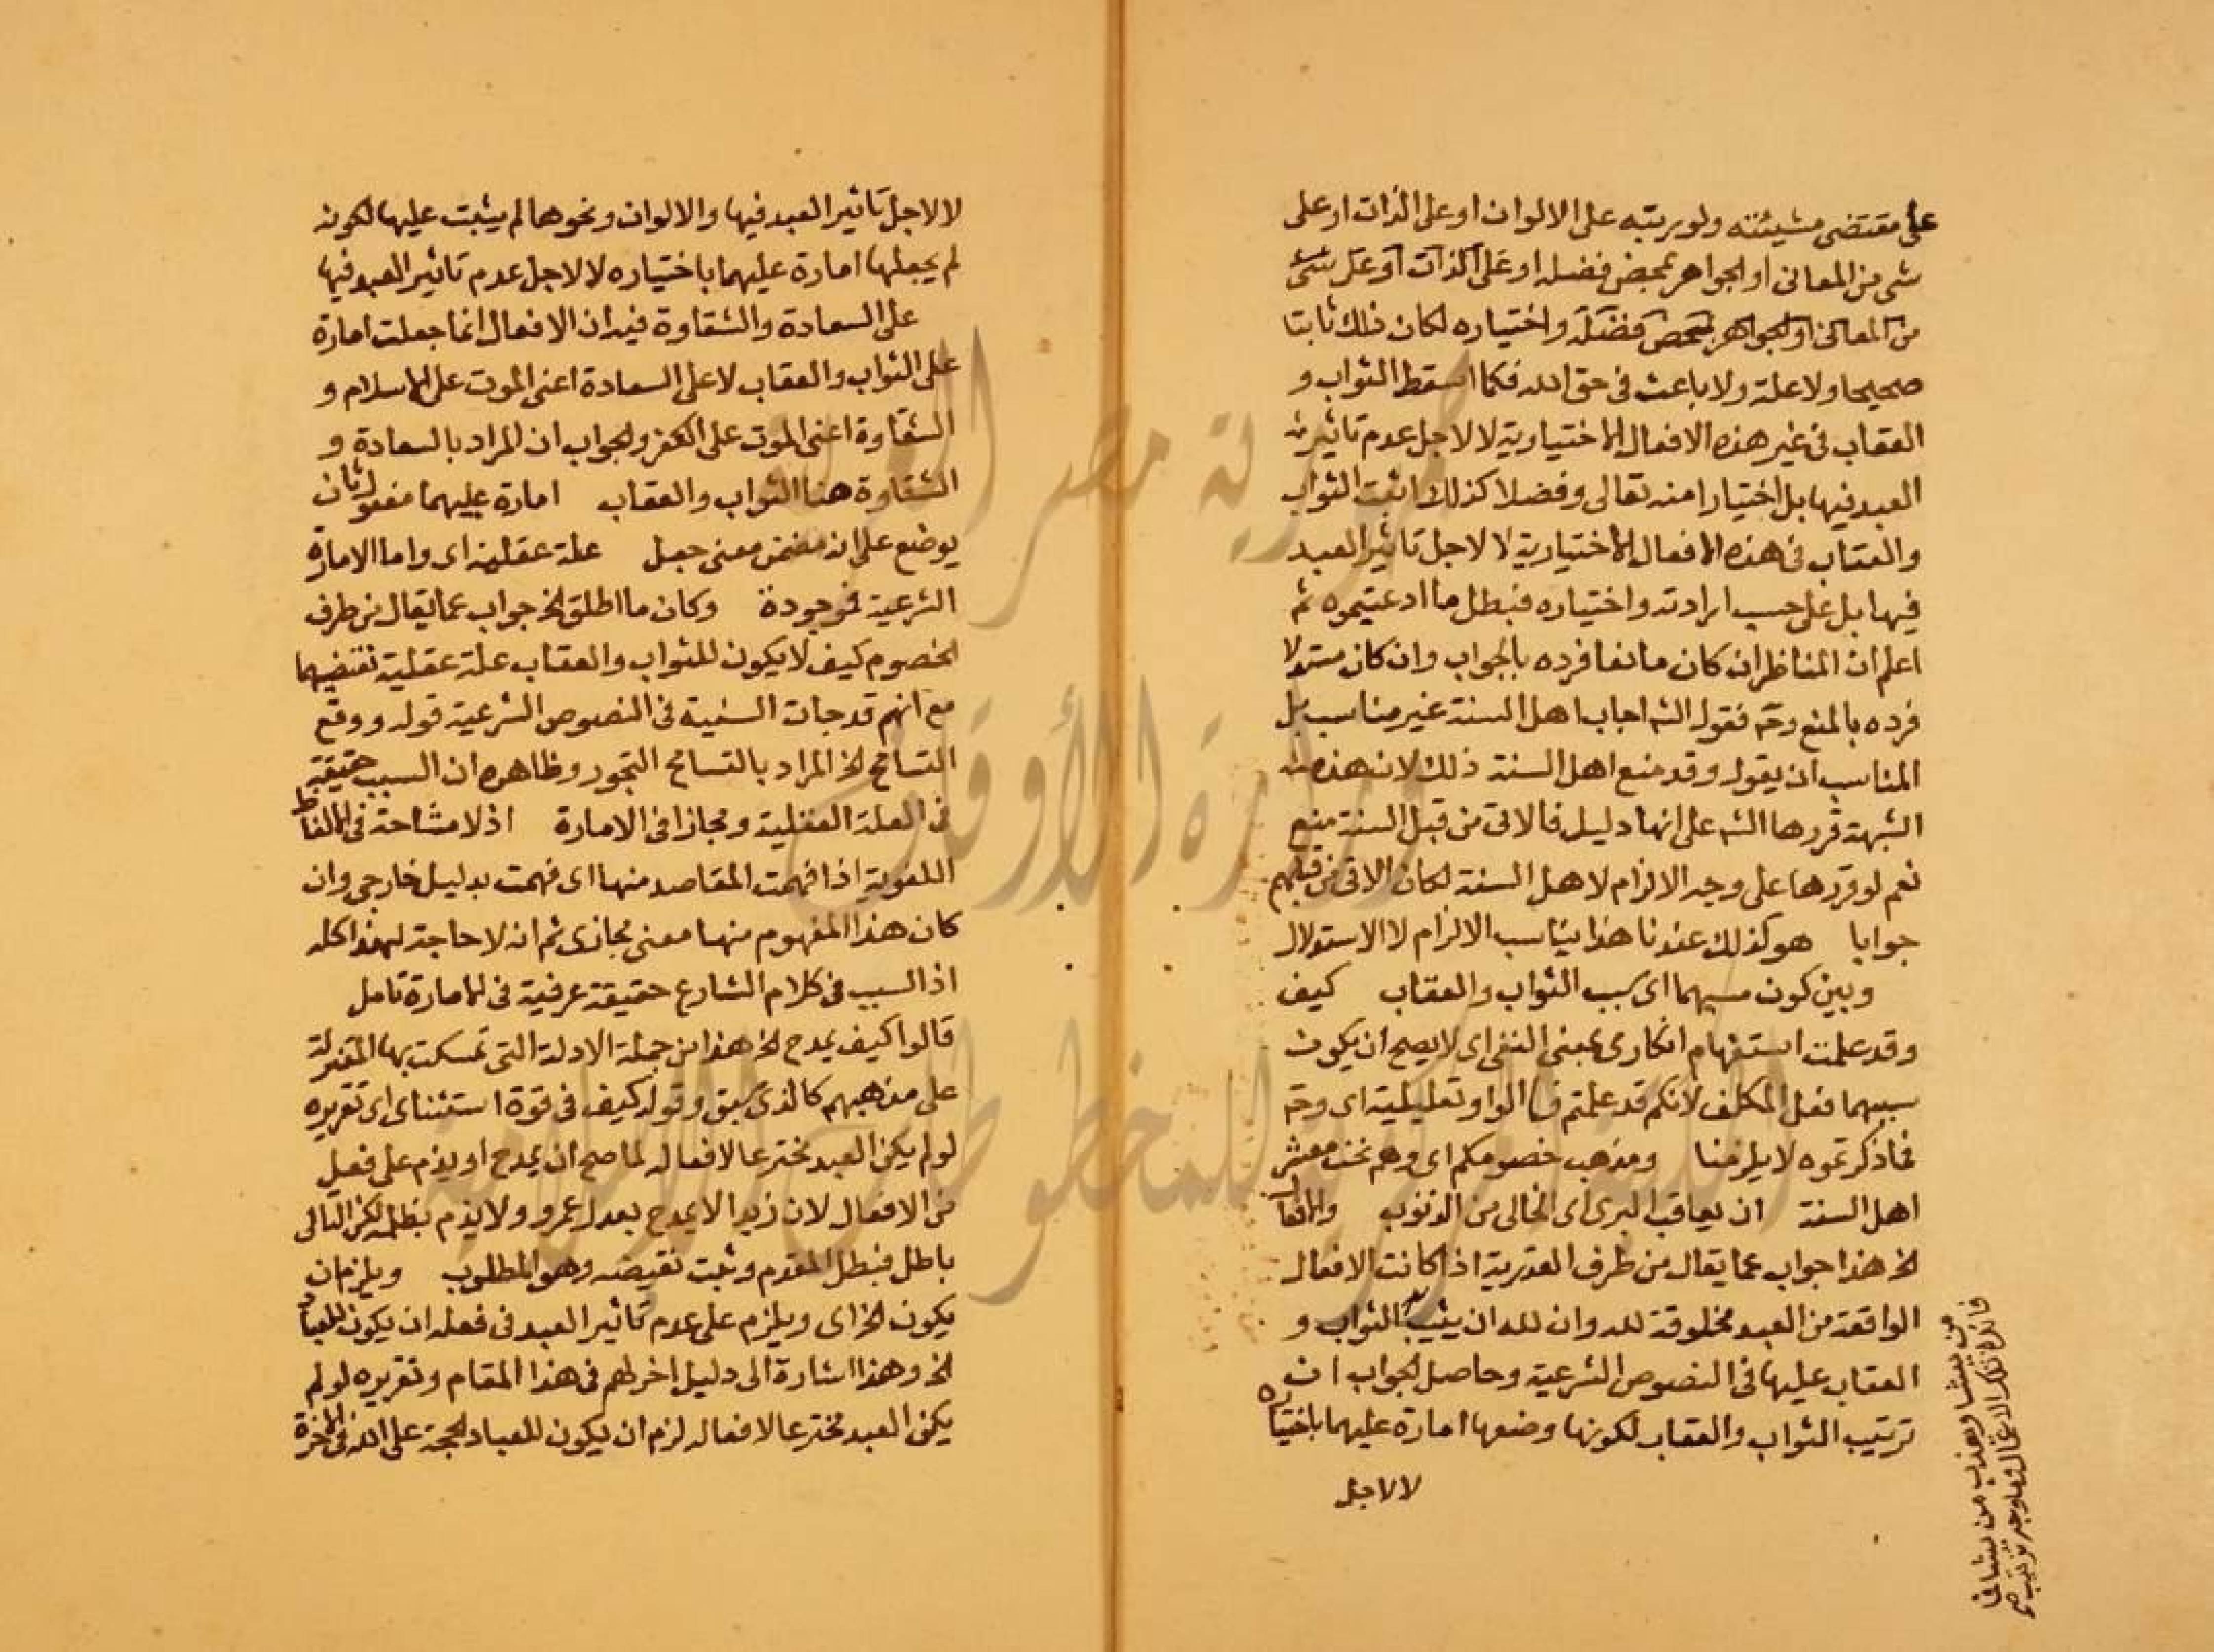 على مقتضى مشيئته ولو رتبه على الالوان او على الذات او على
شي من المعاني او الجواهر بمحض فضله او على الذات او على شي
من المعاني او الجواهر بمحض فضله واختياره لكان ذلك ثابتا
صحيحا ولا علة ولا باعث في حق الله فكما اسقط الثواب و
العقاب في غير هذه الافعال الاختيارية لا لاجل عدم تاثير
العبد فيها بل اختيارا منه تعالى وفضلا كذلك اثبت الثواب
والعقاب في هذه الافعال الاختيارية لا لاجل تاثير العبد
فيها بل على حسب ارادته واختياره فبطل ما ادعيتموه ثم
اعلم ان المناظر ان كان مانعا فرده بالجواب وان كان مستدلا
فرده بالمنع وح فقول الش اجاب اهل السنة غير مناسب بل
المناسب ان يقول وقد منع اهل السنة ذلك لان هذه
الشبهة قررها الش على انها دليل فالاتي من قبل السنة منع
نعم لو قررها على وجه الالزام لاهل السنة لكان الاتي من قبلهم
جوابا هو كذلك عندنا هذا يناسب الالزام لا الاستدلال
وبين كون سببهما اى سبب الثواب والعقاب كيف
وقد علمت استفهام انكارى بمعنى النفى اى لا يصح ان يكون
سببهما فعل المكلف لانكم قد علمتم فالواو تعليلية اى وح
فما ذكرتموه لا يلزمنا ومذهب خصومكم اى وهم نحن معشر
اهل السنة ان يعاقب البرى اى الخالى من الذنوب والافعال
الخ هذا جواب عما يقال من طرف القدرية اذا كانت الافعال
الواقعة من العبد مخلوقة لله وان لله ان يثيب الثواب و
العقاب عليها في النصوص الشرعية وحاصل الجواب ان
ترتيب الثواب والعقاب لكونها وضعها امارة عليهما باختياره
لا لاجل
من يشا ويعذب من يشا في
لا لاجل تاثير العبد فيها والالوان ونحوها لم يثبت عليها لكونه
لم يجعلها امارة عليهما باختياره لا لاجل عدم تاثير العبد فيها
على السعادة والشقاوة فيه ان الافعال انما جعلت امارة
على الثواب والعقاب لا على السعادة اعنى الموت على الاسلام و
الشقاوة اعنى الموت على الكفر والجواب ان المراد بالسعادة و
الشقاوة هنا الثواب والعقاب امارة عليهما مفعول ثان
يوضع على انه مضمن معنى جعل علة عقلية اى واما الامارة
الشرعية فموجودة وكان ما اطلق الخ جواب عما يقال من طرف
الخصوم كيف لا يكون للثواب والعقاب علة عقلية تقتضيهما
مع انهم قد جات السببية في النصوص الشرعية قوله ووقع
التسامح الخ المراد بالتسامح التجوز وظاهره ان السبب حقيقة
في العلة العقلية ومجازا في الامارة اذ لا مشاحة في الالفاظ
اللغوية اذا فهمت المقاصد منها اى فهمت بدليل خارجى وان
كان هذا المفهوم منها معنى مجازى ثم انه لا حاجة لهذا كله
اذ السبب في كلام الشارع حقيقة عرفية في الامارة تامل
قالوا كيف يمدح الخ هذا من جملة الادلة التى تمسكت بها المعتزلة
على مذهبهم كالذى سبق وقوله كيف في قوة استثناى اى تقريره
لو لم يكن العبد مخترعا لافعاله لما صح ان يمدح او يذم على فعل
من الافعال لان زيدا لا يمدح بعدل عمرو ولا يذم بظلمه لكن التالى
باطل فبطل المقدم وثبت نقيضه وهو المطلوب ويلزم ان
يكون الخ اى ويلزم على عدم تاثير العبد في فعله ان يكون للعباد
الخ وهذا اشارة الى دليل اخر لهم في هذا المقام وتقريره لو لم
يكن العبد مخترعا لافعاله لزم ان يكون للعباد الحجة على الله في الاخرة